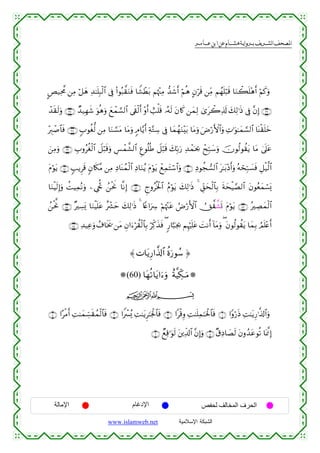 المصحف الشريف برواية هشام عن ابن عامر
وَكَمْ أَهْلَكْنَا قَبْلَهُم مِّن قَرْنٍ هُمْ أَشَدُّ مِنْهُم بَطْشًا فَنَقَّبُوا۟ فِى ٱلْبِلَٰدِ هَلْ مِن مَّحِيصٍ
۝ إِنَّ فِى ذَٰلِكَ لَذِكْرَىٰ لِمَن كَانَ لَهُۥ قَلْبٌ أَوْ أَلْقَى ٱلسَّمْعَ وَهُوَ شَهِيدٌ ۝ وَلَقَدْ
خَلَقْنَا ٱلسَّمَٰوَٰتِ وَٱلْأَرْضَ وَمَا بَيْنَهُمَا فِى سِتَّةِ أَيَّامٍ وَمَا مَسَّنَا مِن لُّغُوبٍ ۝ فَٱصْبِرْ
عَلَىٰ مَا يَقُولُونَ وَسَبِّحْ بِحَمْدِ رَبِّكَ قَبْلَ طُلُوعِ ٱلشَّمْسِ وَقَبْلَ ٱلْغُرُوبِ ۝ وَمِنَ
ٱلَّيْلِ فَسَبِّحْهُ وَأَدْبَٰرَ ٱلسُّجُودِ ۝ وَٱسْتَمِعْ يَوْمَ يُنَادِ ٱلْمُنَادِ مِن مَّكَانٍ قَرِيبٍ ۝ يَوْمَ
يَسْمَعُونَ ٱلصَّيْحَةَ بِٱلْحَقِّ ذَٰلِكَ يَوْمُ ٱلْخُرُوجِ ۝ إِنَّا نَحْنُ نُحْىِۦ وَنُمِيتُ وَإِلَيْنَا
ٱلْمَصِيرُ ۝ يَوْمَ تَشَّقَّقُ ٱلْأَرْضُ عَنْهُمْ سِرَاعًا ذَٰلِكَ حَشْرٌ عَلَيْنَا يَسِيرٌ ۝ نَّحْنُ
أَعْلَمُ بِمَا يَقُولُونَ وَمَا أَنتَ عَلَيْهِم بِجَبَّارٍ فَذَكِّرْ بِٱلْقُرْءَانِ مَن يَخَافُ وَعِيدِ ۝
﴿ سُورَةُ ٱلذَّارِيَات ﴾
مَكِّيَّةٌ وَءَايَاتُهَا (60)
بِسْمِ ٱللَّهِ ٱلرَّحْمَٰنِ ٱلرَّحِيمِ
وَٱلذَّٰرِيَٰتِ ذَرْوًا ۝ فَٱلْحَٰمِلَٰتِ وِقْرًا ۝ فَٱلْجَٰرِيَٰتِ يُسْرًا ۝ فَٱلْمُقَسِّمَٰتِ أَمْرًا ۝
إِنَّمَا تُوعَدُونَ لَصَادِقٌ ۝ وَإِنَّ ٱلدِّينَ لَوَٰقِعٌ ۝
الحرف المخالف لحفص الإدغام الإمالة
الشبكة الإسلامية www.islamweb.net